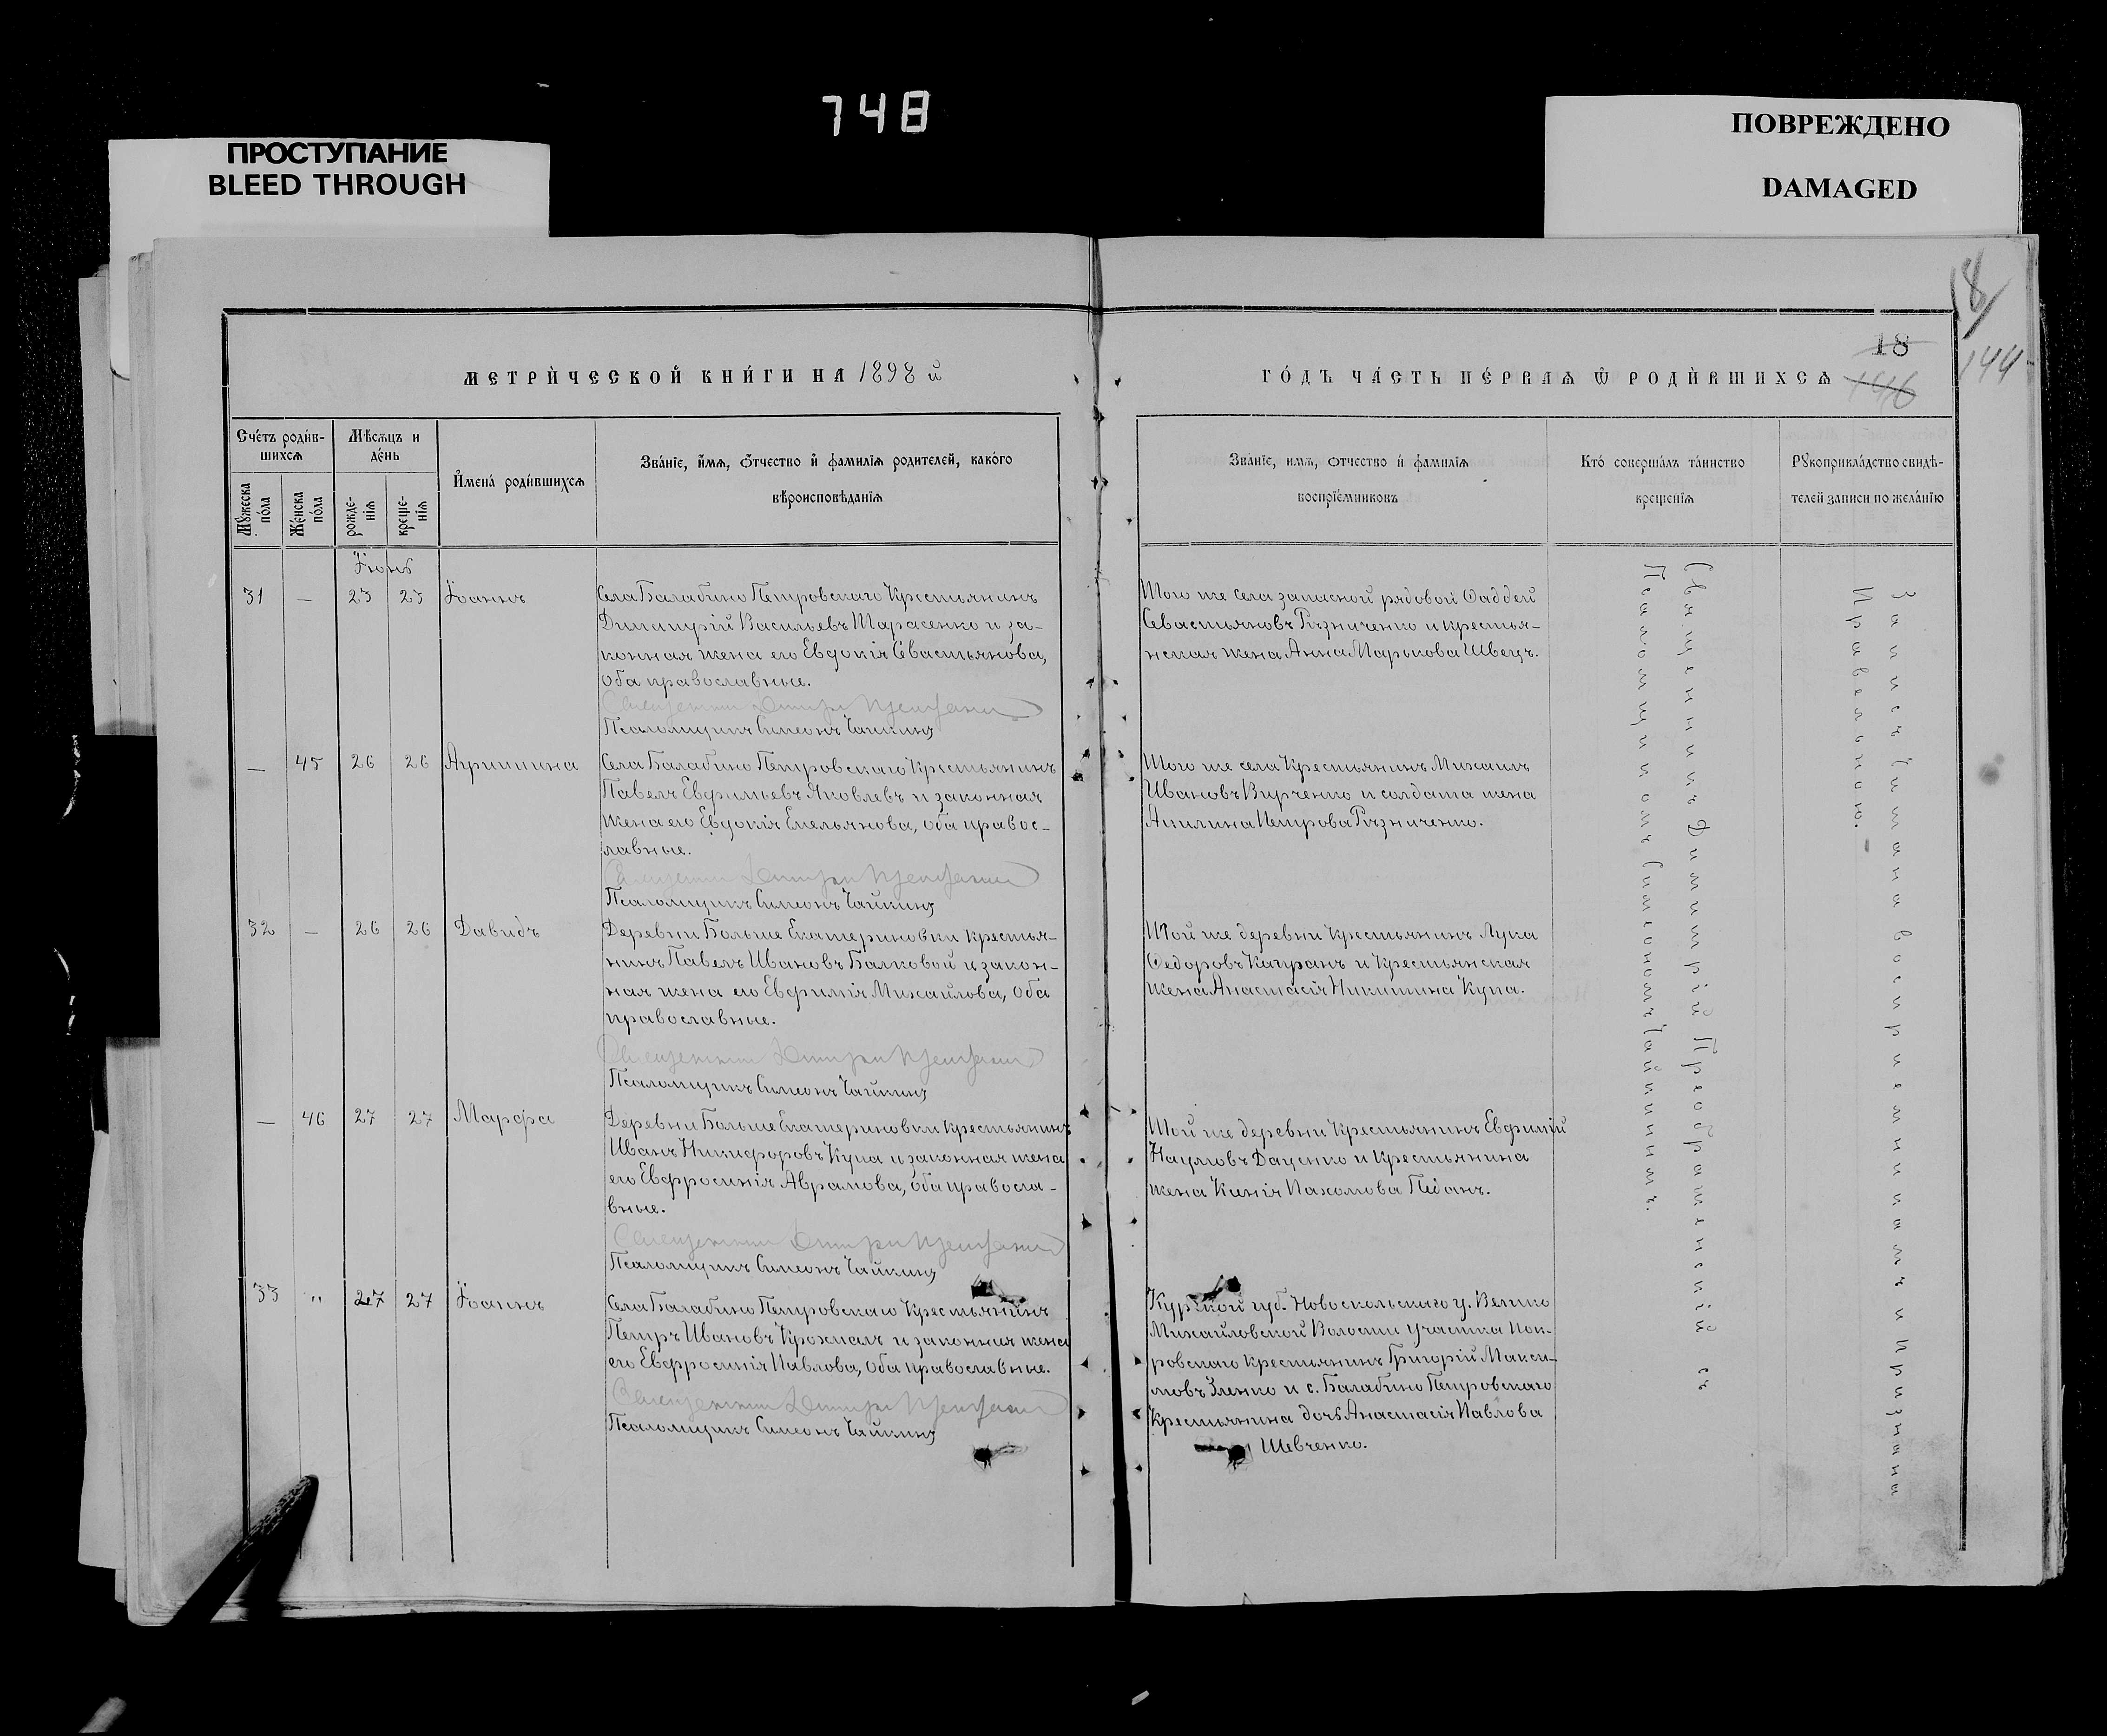 748
ПРОСТУПАНИЕ
BLEED THROUGH
ПОВРЕЖДЕНО
DAMAGED
18
18
144
146
МЕТРИ́ЧЕСКОЙ КНИ́ГИ НА 1898 й
ГО́ДЪ ЧА́СТЬ ПЕ́РВАѦ Ѿ РОДИ́ВШИХСѦ
Сче́тъ роди́в-
шихсѧ
Мѣ́сѧцъ и
де́нь
Му́жеска
по́ла
Же́нска
по́ла
рожде-
нїѧ
креще-
нїѧ
И҆мена̀ роди́вшихсѧ
Зва́нїе, и҆́мѧ, ѻ҆́тчество и҆ фамилїѧ родителей, како́го
вѣроисповѣ́данїѧ
Зва́нїе, имѧ, отчество и҆ фамилїѧ
воспрїе́мниковъ
Кто̀ соверша́лъ та́инство
креще́нїѧ
Рꙋкоприкла́дство свидѣ́-
телей записи по жела́нїю
Іюнь
31 — 23 23 Іоаннъ
Села Балабино Петровскаго Крестьянинъ
Димитрій Васильевъ Тарасенко и за-
конная жена его Евдокія Севастьянова,
оба православные.
Священникъ Димитрій Преображенскій
Псаломщикъ Симеонъ Чайкинъ
Того же села запасной рядовой Фаддей
Севастьяновъ Рѣзниченко и крестья-
нская жена Анна Маркова Швецъ.
— 45 26 26 Агрипина
Села Балабино Петровскаго Крестьянинъ
Павелъ Евфимьевъ Яковлевъ и законная
жена его Евдокія Емельянова, оба правос-
лавные.
Священникъ Димитрій Преображенскій
Псаломщикъ Симеонъ Чайкинъ
Того же села Крестьянинъ Михаилъ
Ивановъ Вирченко и солдата жена
Акилина Петрова Рѣзниченко.
32 — 26 26 Давидъ
Деревни Больше Екатериновки крестья-
нинъ Павелъ Ивановъ Балковой и закон-
ная жена его Евфимія Михайлова, оба
православные.
Священникъ Димитрій Преображенскій
Псаломщикъ Симеонъ Чайкинъ
Той же деревни Крестьянинъ Лука
Федоровъ Капранъ и Крестьянская
жена Анастасія Никитина Купа.
— 46 27 27 Марфа
Деревни Больше Екатериновки крестьянинъ
Иванъ Никифоровъ Купа и законная жена
его Евфросинія Аврамова, оба правосла-
вные.
Священникъ Димитрій Преображенскій
Псаломщикъ Симеонъ Чайкинъ
Той же деревни Крестьянинъ Евфимій
Наумовъ Даценко и Крестьянина
жена Ксенія Пахомова Педанъ.
33 " 27 27 Іоаннъ
Села Балабино Петровскаго Крестьянинъ
Петръ Ивановъ Крохмаль и законная жена
его Евфросинія Павлова, оба православные.
Священникъ Димитрій Преображенскій
Псаломщикъ Симеонъ Чайкинъ
Курской губ. Новоскольскаго у. Велико
Михайловской Волости Участка Пок-
ровскаго крестьянинъ Григорій Макси-
мовъ Зленко и с. Балабино Петровскаго
Крестьянина дочь Анастасія Павлова
Шевченко.
Священникъ Димитрій Преображенскій съ
Псаломщикомъ Симеономъ Чайкинымъ.
Запись читана восприемникамъ и признана
Правельною.